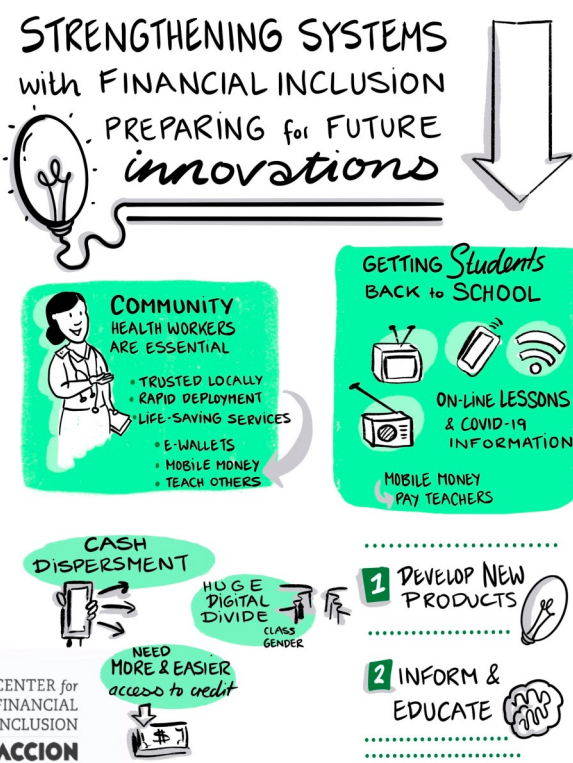 STRENGTHENING SYSTEMS
with FINANCIAL INCLUSION
PREPARING for FUTURE
innovations
COMMUNITY
HEALTH WORKERS
ARE ESSENTIAL
• TRUSTED LOCALLY
• RAPID DEPLOYMENT
• LIFE-SAVING SERVICES
• E-WALLETS
• MOBILE MONEY
• TEACH OTHERS
GETTING Students
BACK to SCHOOL
ON-LINE LESSONS
& COVID-19
INFORMATION
MOBILE MONEY
PAY TEACHERS
CASH
DISPERSMENT
HUGE
DIGITAL
DIVIDE
CLASS
GENDER
NEED
MORE & EASIER
access to credit
$
1 DEVELOP NEW
PRODUCTS
2 INFORM &
EDUCATE
CENTER for
FINANCIAL
INCLUSION
ACCION